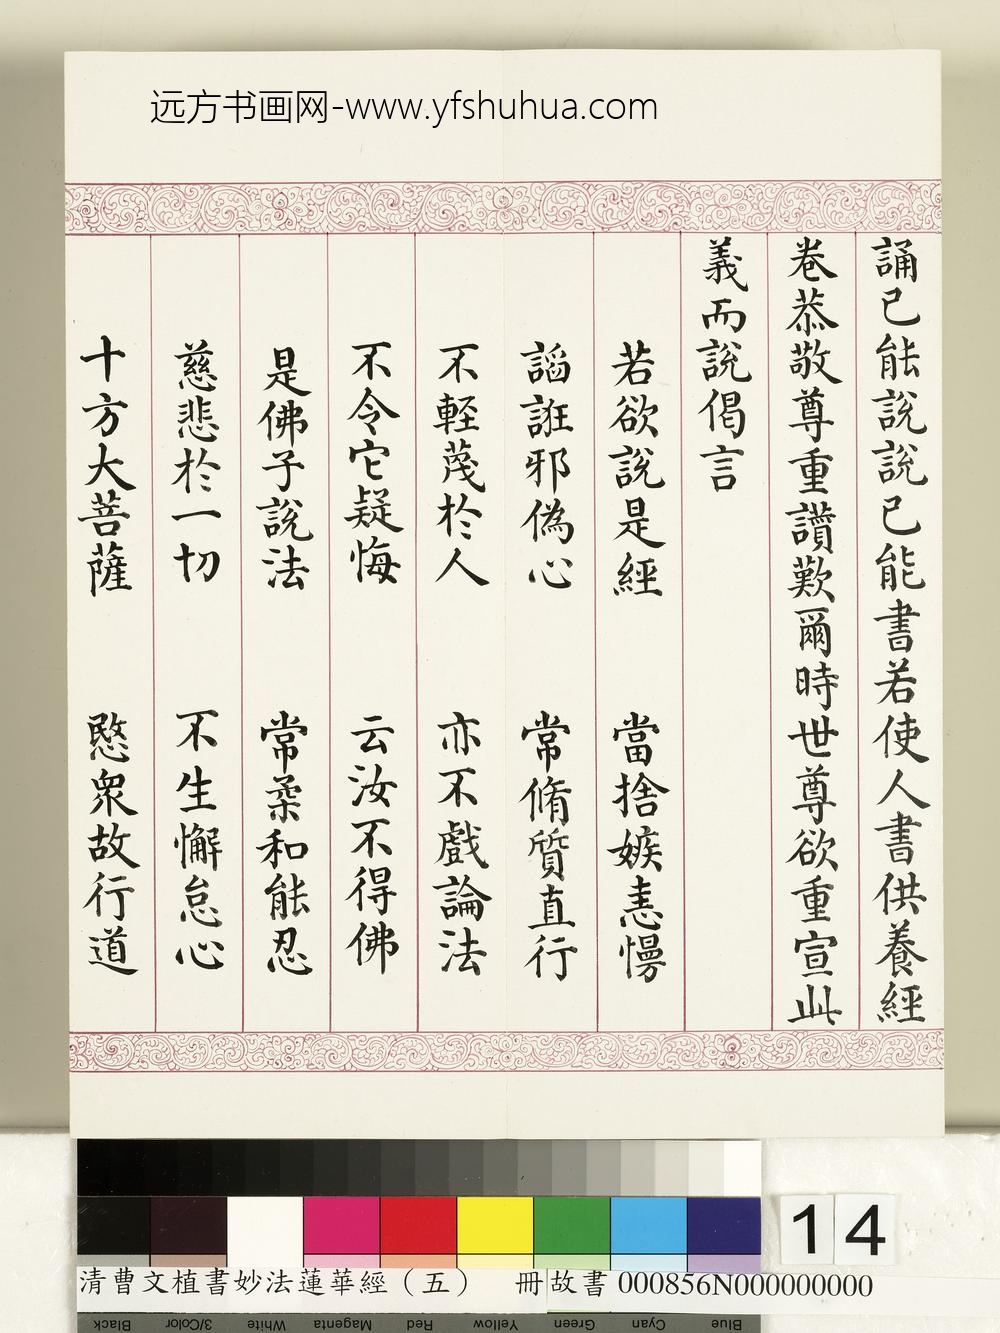 远方书画网-www.yfshuhua.com
誦已能說說已能書若使人書供養經
卷恭敬尊重讚歎爾時世尊欲重宣此
義而說偈言
若欲說是經 當捨嫉恚慢
謟誑邪偽心 常脩質直行
不輕蔑於人 亦不戲論法
不令它疑悔 云汝不得佛
是佛子說法 常柔和能忍
慈悲於一切 不生懈怠心
十方大菩薩 愍衆故行道
14
清曹文植書妙法蓮華經（五） 冊 故書 000856N000000000
Black 3/Color White Magenta Red Yellow Green Cyan Blue